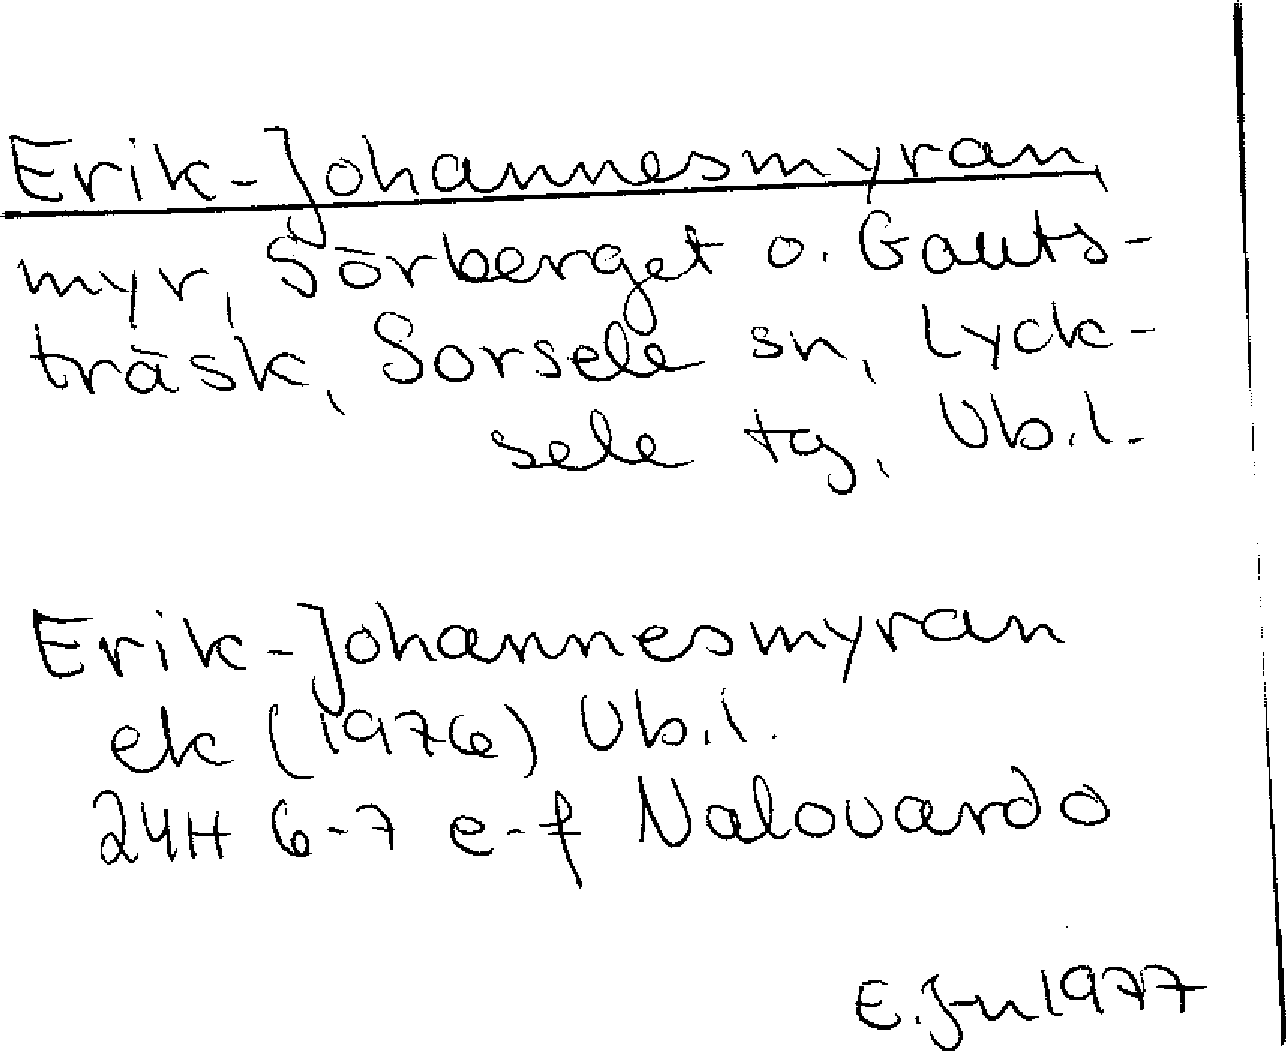 Erik-Johannesmyran,
myr, Sörberget o. Gauts-
träsk, Sorsele sn, Lyck-
sele tg, Vb.l.
Erik-Johannesmyran
ek (1976) Vb.l.
24H 6-7 e-f Nalovardo
E. J-n 1977